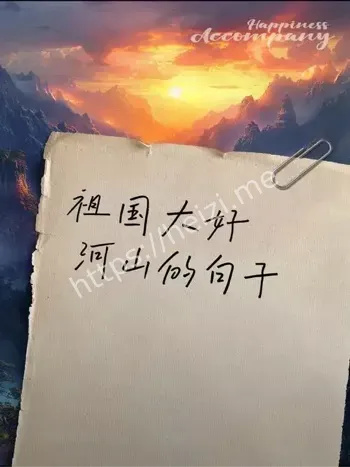 Happiness
Accompany
祖国大好
河山的句子
https://meizi.me